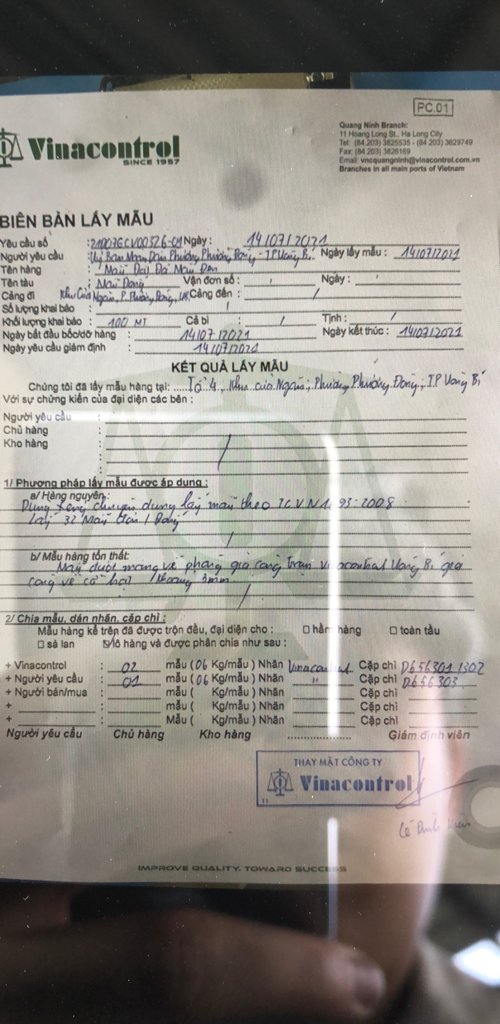 PC.01
Vinacontrol
SINCE 1957
Quang Ninh Branch:
11 Hoang Long St., Ha Long City
Tel: (84.203) 3825535 - (84.203) 3629749
Fax: (84.203) 3826169
Email: vncquangninh@vinacontrol.com.vn
Branches in all main ports of Vietnam
BIÊN BẢN LẤY MẪU
Yêu cầu số : 21G07GCV00526-01 Ngày: 14/07/2021
Người yêu cầu : Nhân Dân Phường Phương Đông - TP Uông Bí Ngày lấy mẫu : 14/07/2021
Tên hàng : Mẫu Đá Đen
Tên tàu : Vận đơn số : Ngày :
Cảng đi Khu Cửa Ngăn, P. Phương Đông, UB Cảng đến : /
Số lượng khai báo : /
Khối lượng khai báo : 100 MT Cả bì : / Tịnh : /
Ngày bắt đầu bốc/dỡ hàng : 14/07/2021 Ngày kết thúc : 14/07/2021
Ngày yêu cầu giám định : 14/07/2021
KẾT QUẢ LẤY MẪU
Chúng tôi đã lấy mẫu hàng tại: Tổ 4, Khu cửa Ngăn, Phường Phương Đông, TP Uông Bí
Với sự chứng kiến của đại diện các bên :
Người yêu cầu :
Chủ hàng :
Kho hàng :
1/ Phương pháp lấy mẫu được áp dụng :
a/ Hàng nguyên:
Dùng xẻng chuyên dụng lấy mẫu theo TCVN 1693-2008
Lấy 32 Mẫu đơn /
b/ Mẫu hàng tổn thất:
Mẫu được mang về phòng gia công trạm Vinacontrol Uông Bí gia
công về cỡ hạt 3mm
2/ Chia mẫu, dán nhãn, cặp chì :
Mẫu hàng kể trên đã được trộn đều, đại diện cho : □ hầm hàng □ toàn tàu
□ sà lan ☑ lô hàng và được phân chia như sau :
+ Vinacontrol 02 mẫu ( 06 Kg/mẫu ) Nhãn Vinacontrol Cặp chì D656301 1302
+ Người yêu cầu 01 mẫu ( 06 Kg/mẫu ) Nhãn " Cặp chì D656303
+ Người bán/mua : mẫu ( Kg/mẫu ) Nhãn Cặp chì
+ : mẫu ( Kg/mẫu ) Nhãn Cặp chì
+ : mẫu ( Kg/mẫu ) Nhãn Cặp chì
+ : Mẫu ( Kg/mẫu ) Nhãn Cặp chì
Người yêu cầu Chủ hàng Kho hàng .................. Giám định viên
THAY MẶT CÔNG TY
Vinacontrol
11
IMPROVE QUALITY, TOWARD SUCCESS